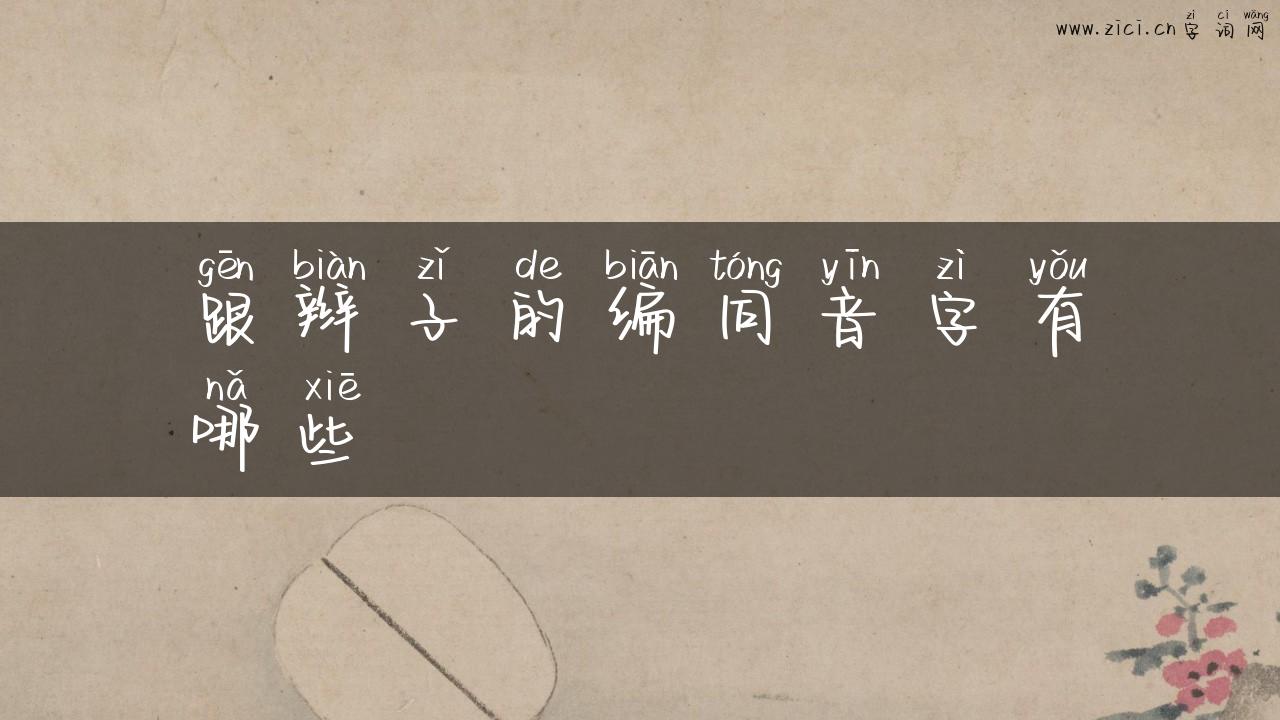 zì cí wǎng
www.zici.cn 字词网
gēn biàn zǐ de biān tóng yīn zì yǒu
跟辫子的编同音字有
nǎ xiē
哪些